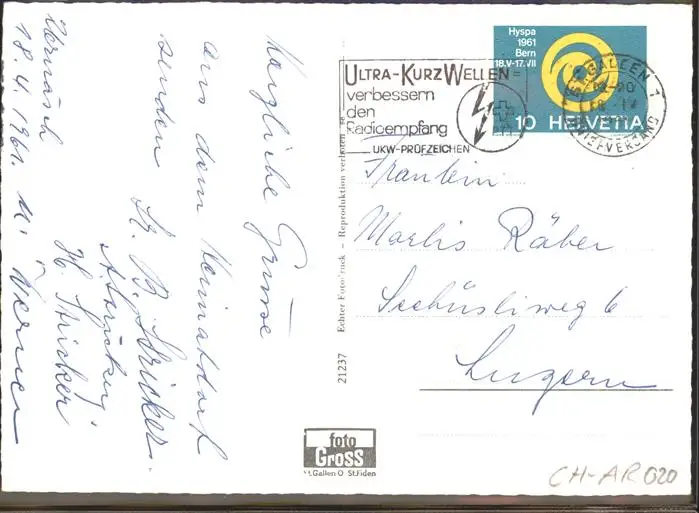 Urnäsch
18.4.1961.
Herzliche Grüsse
aus dem Heimatdorf
senden
B. Stricker.
H. Stricker
u. Werner
Hyspa
1961
Bern
18.V-17.VII
10 HELVETIA
ST. GALLEN 1
BRIEFVERSAND
ULTRA-KURZWELLEN
verbessern
den
Radioempfang
UKW-PRÜFZEICHEN
Fräulein
Marlis Räber
Seehüsliweg 6
Luzern
21237 Echter Fotodruck - Reproduktion verboten
foto
GROSS
St.Gallen O St.Fiden
CH-AR 020